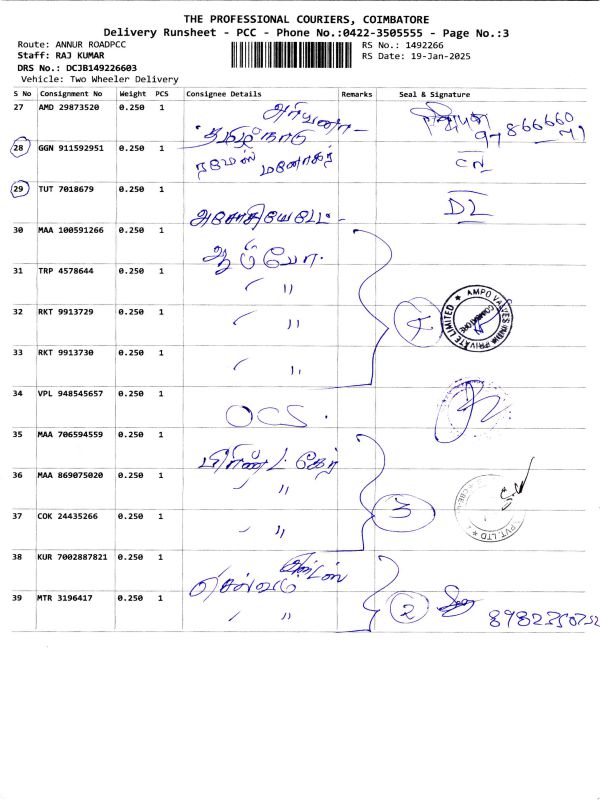 THE PROFESSIONAL COURIERS, COIMBATORE
Delivery Runsheet - PCC - Phone No.:0422-3505555 - Page No.:3
Route: ANNUR ROADPCC
RS No.: 1492266
Staff: RAJ KUMAR
RS Date: 19-Jan-2025
DRS No.: DCJB149226603
Vehicle: Two Wheeler Delivery
S No Consignment No Weight PCS Consignee Details Remarks Seal & Signature
27 AMD 29873520 0.250 1
தமிழ்நாடு
28 GGN 911592951 0.250 1 ரமேஸ் மனோகர் CN
29 TUT 7018679 0.250 1 DL
30 MAA 100591266 0.250 1 ஆம்போ.
31 TRP 4578644 0.250 1 〃
32 RKT 9913729 0.250 1 〃 4 AMPO VALVES INDIA PRIVATE LIMITED COIMBATORE
33 RKT 9913730 0.250 1 〃
34 VPL 948545657 0.250 1 OCS.
35 MAA 706594559 0.250 1
36 MAA 869075020 0.250 1 〃
37 COK 24435266 0.250 1 〃 3 PVT. LTD
38 KUR 7002887821 0.250 1
39 MTR 3196417 0.250 1 〃 2